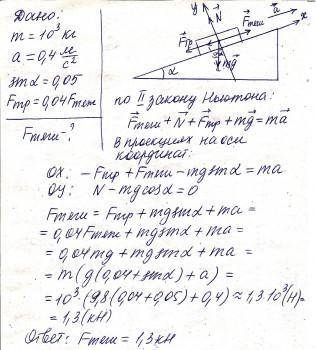 Дано:
m = 10³ кг
a = 0,4 м/с²
sinα = 0,05
Fтр = 0,04 Fтяж
Fтяж - ?
y
N
a
x
Fтяж
Fтр
mg
α
по II закону Ньютона:
Fтяж + N + Fтр + mg = ma
в проекциях на оси
координат:
OX: -Fтр + Fтяж - mgsinα = ma
OY: N - mgcosα = 0
Fтяж = Fтр + mgsinα + ma =
= 0,04Fтяж + mgsinα + ma =
= 0,04mg + mgsinα + ma =
= m(g(0,04 + sinα) + a) =
= 10³·(9,8(0,04 + 0,05) + 0,4) ≈ 1,3·10³(Н) =
= 1,3 (кН)
Ответ: Fтяж = 1,3 кН